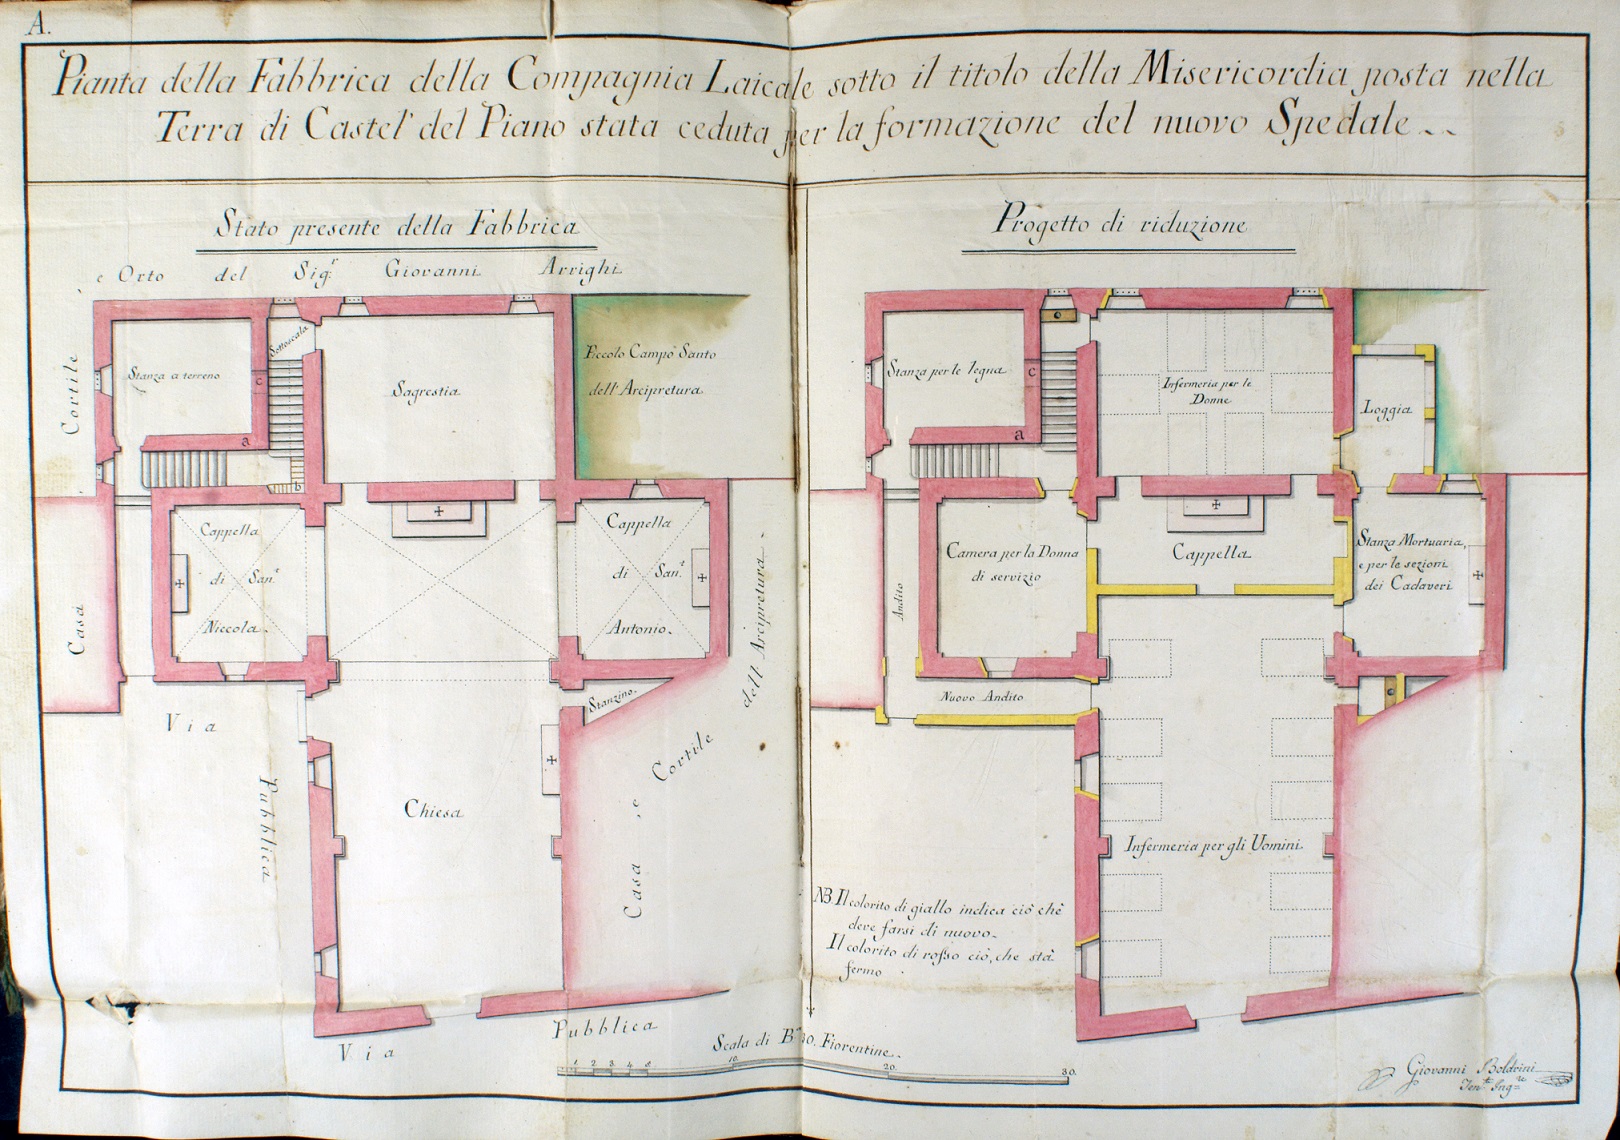 A.
Pianta della Fabbrica della Compagnia Laicale sotto il titolo della Misericordia posta nella
Terra di Castel' del Piano stata ceduta per la formazione del nuovo Spedale
Stato presente della Fabbrica
Cortile e Orto del Sig.r Giovanni Arrighi
Stanza a terreno
c
a
b
Sottoscala
Sagrestia
Piccolo Campo Santo
dell'Arcipretura
Casa
Cappella
di San.t
Niccola.
Cappella
di San.t
Antonio.
Stanzino.
Via
Pubblica
Chiesa
Casa, e Cortile dell'Arcipretura
Via Pubblica
Progetto di riduzione
Stanza per le legna
c
a
Infermeria per le
Donne
Loggia
Andito
Camera per la Donna
di servizio
Cappella
Stanza Mortuaria,
e per le sezioni
dei Cadaveri
Nuovo Andito
Infermeria per gli Uomini
NB. Il colorito di giallo indica ciò chè
deve farsi di nuovo.
Il colorito di rosso ciò, che stà
fermo
Scala di B.a 30. Fiorentine.
1 2 3 4 5. 10. 20. 30.
Giovanni Boldrini
Ten.te Ing.re